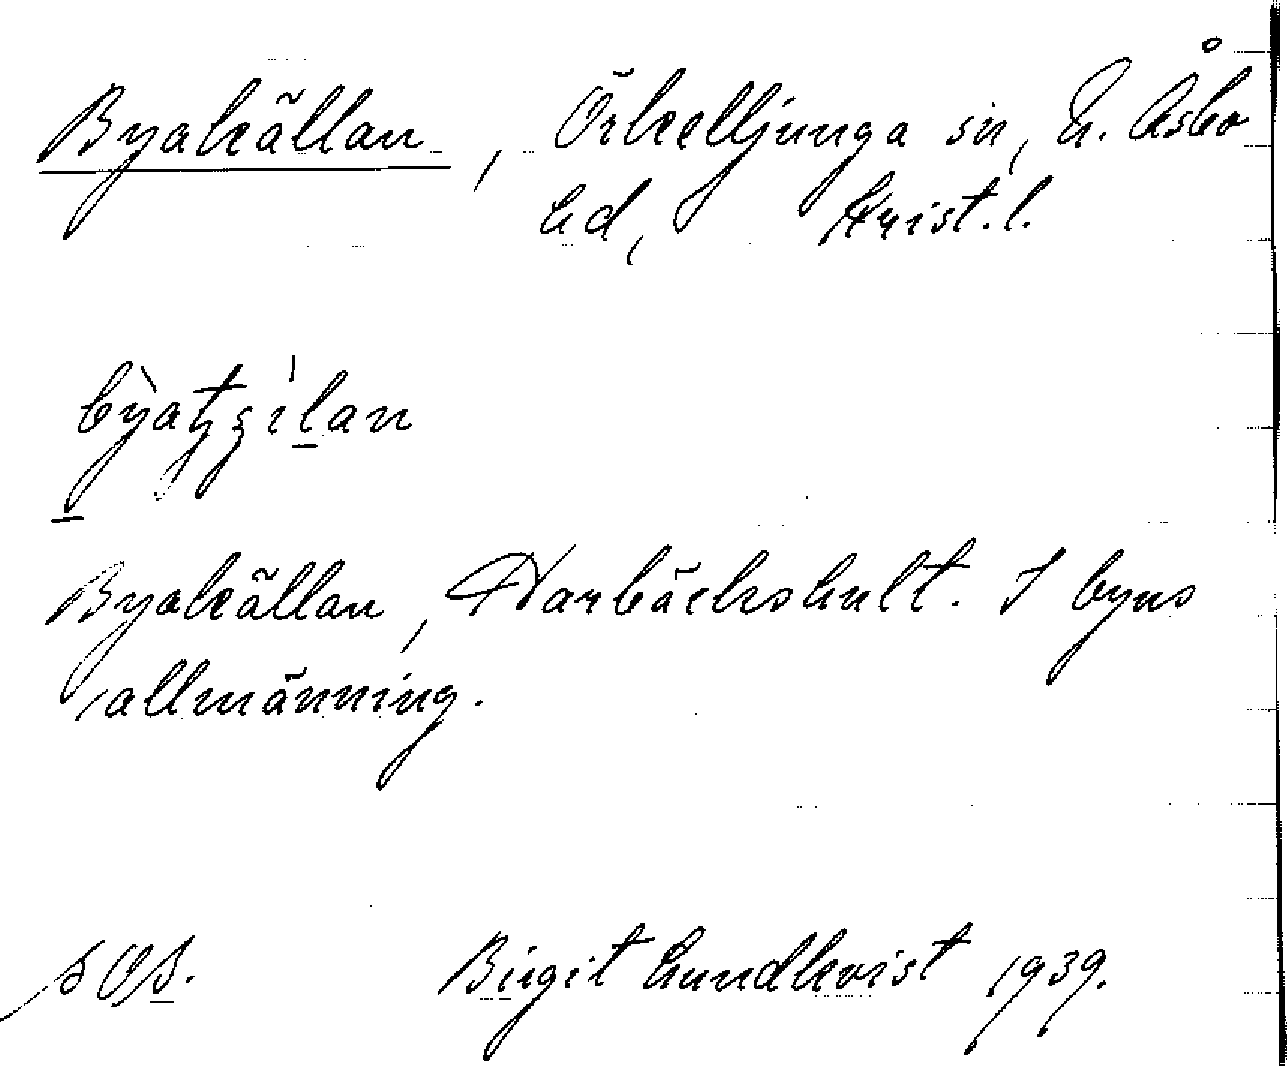 Byakällan, Örkelljunga sn, N. Åsbo
hd, Krist.l.
Byakällan, Harbäckshult. I byns
allmänning.
Birgit Lundkvist 1939.